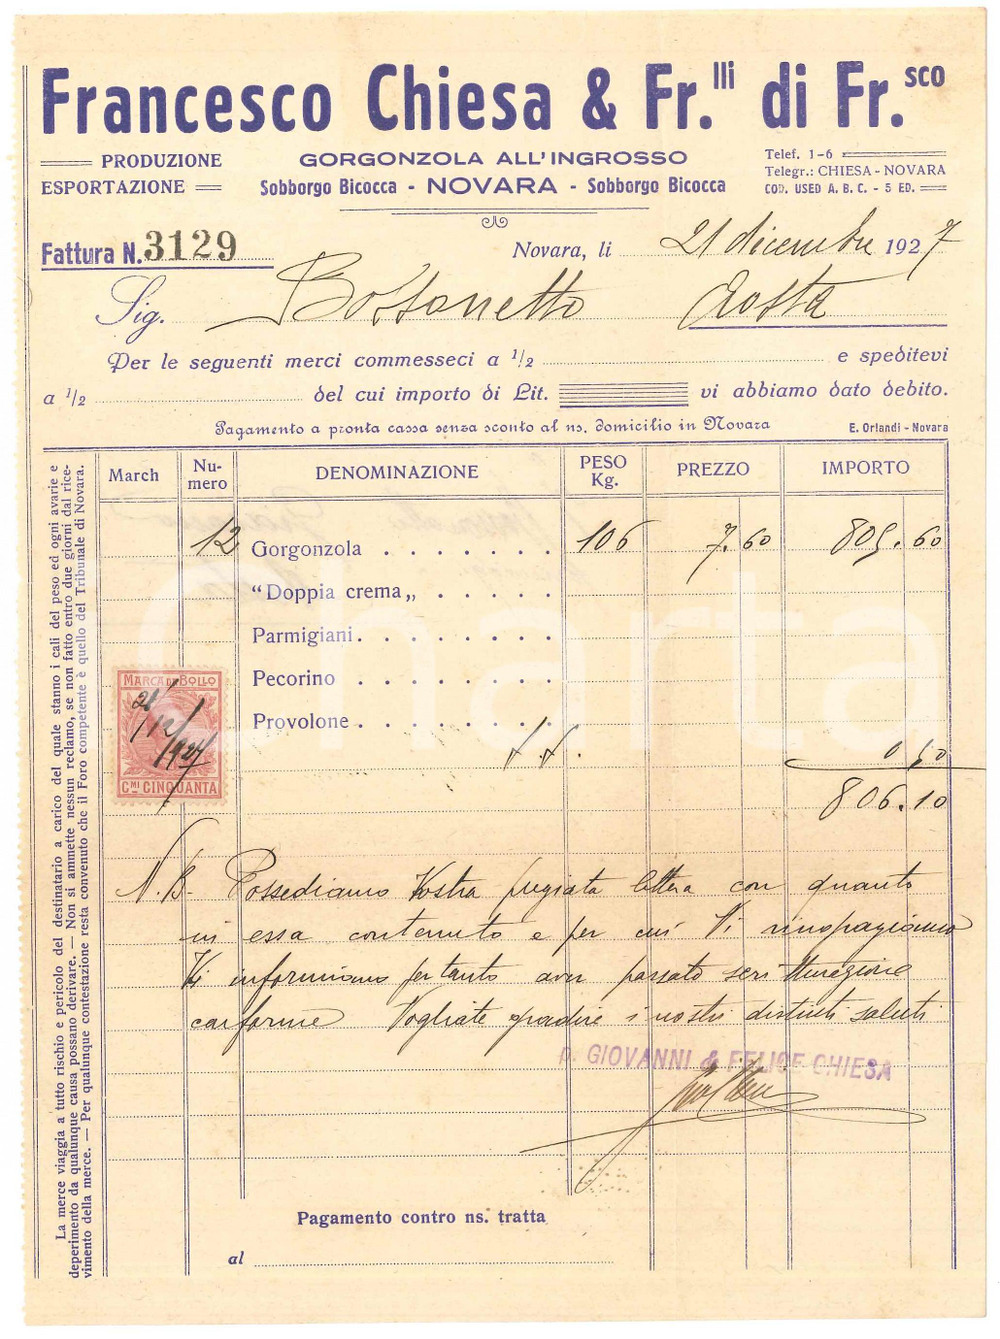 Francesco Chiesa & Fr.lli di Fr.sco
PRODUZIONE
ESPORTAZIONE
GORGONZOLA ALL'INGROSSO
Sobborgo Bicocca - NOVARA - Sobborgo Bicocca
Telef. 1-6
Telegr.: CHIESA - NOVARA
COD. USED A. B. C. - 5 ED.
Fattura N. 3129
Novara, li 21 dicembre 1927
Sig. Bossonetto Aosta
Per le seguenti merci commesseci a 1/2 e speditevi
a 1/2 del cui importo di Lit. vi abbiamo dato debito.
Pagamento a pronta cassa senza sconto al ns. domicilio in Novara
E. Orlandi - Novara
March Nu-mero DENOMINAZIONE PESO Kg. PREZZO IMPORTO
12 Gorgonzola . . . . . . . 106 7.60 805.60
"Doppia crema„ . . . . .
Parmigiani . . . . . . . .
Pecorino . . . . . . .
Provolone . . . . . . . .
MARCA DA BOLLO
21/12/1927
CMI CINQUANTA
0,50
806.10
N.B. Possediamo Vostra pregiata lettera con quanto
in essa contenuto e per cui Vi ringraziamo
Vi informiamo pertanto aver passato scritturazione
conforme Vogliate gradire i nostri distinti saluti
p. GIOVANNI & FELICE CHIESA
Pagamento contro ns. tratta
al
La merce viaggia a tutto rischio e pericolo del destinatario a carico del quale stanno i cali del peso ed ogni avarie e
deperimento da qualunque causa possano derivare. — Non si ammette nessun reclamo, se non fatto entro due giorni dal rice-
vimento della merce. — Per qualunque contestazione resta convenuto che il Foro competente è quello del Tribunale di Novara.
Charta